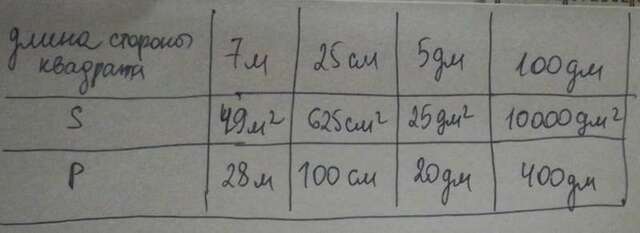 длина стороны квадрата 7м 25см 5дм 100дм
S 49м² 625см² 25дм² 10000дм²
P 28м 100см 20дм 400дм